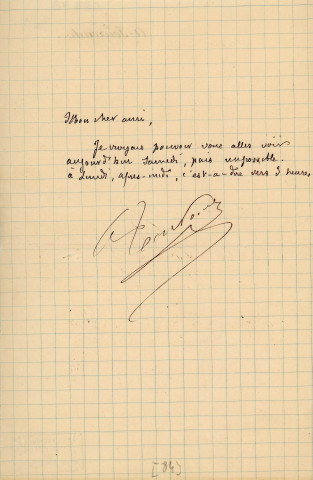 Mon cher ami,
Je croyais pouvoir vous aller voir
aujourd'hui samedi, mais impossible.
à Lundi, après-midi, c'est-à-dire vers 3 heures,
[84]